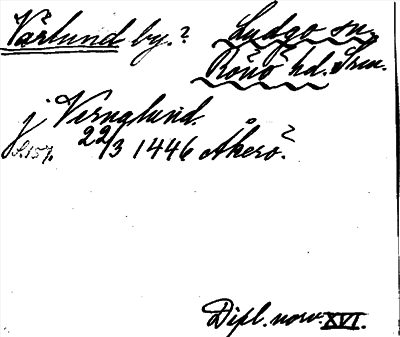 Värlund by.? Ludgo sn.
Rönö hd. Srm.
j Vernglund.
s. 157. 22/3 1446 Åkerö?
Dipl. norv. XVI.